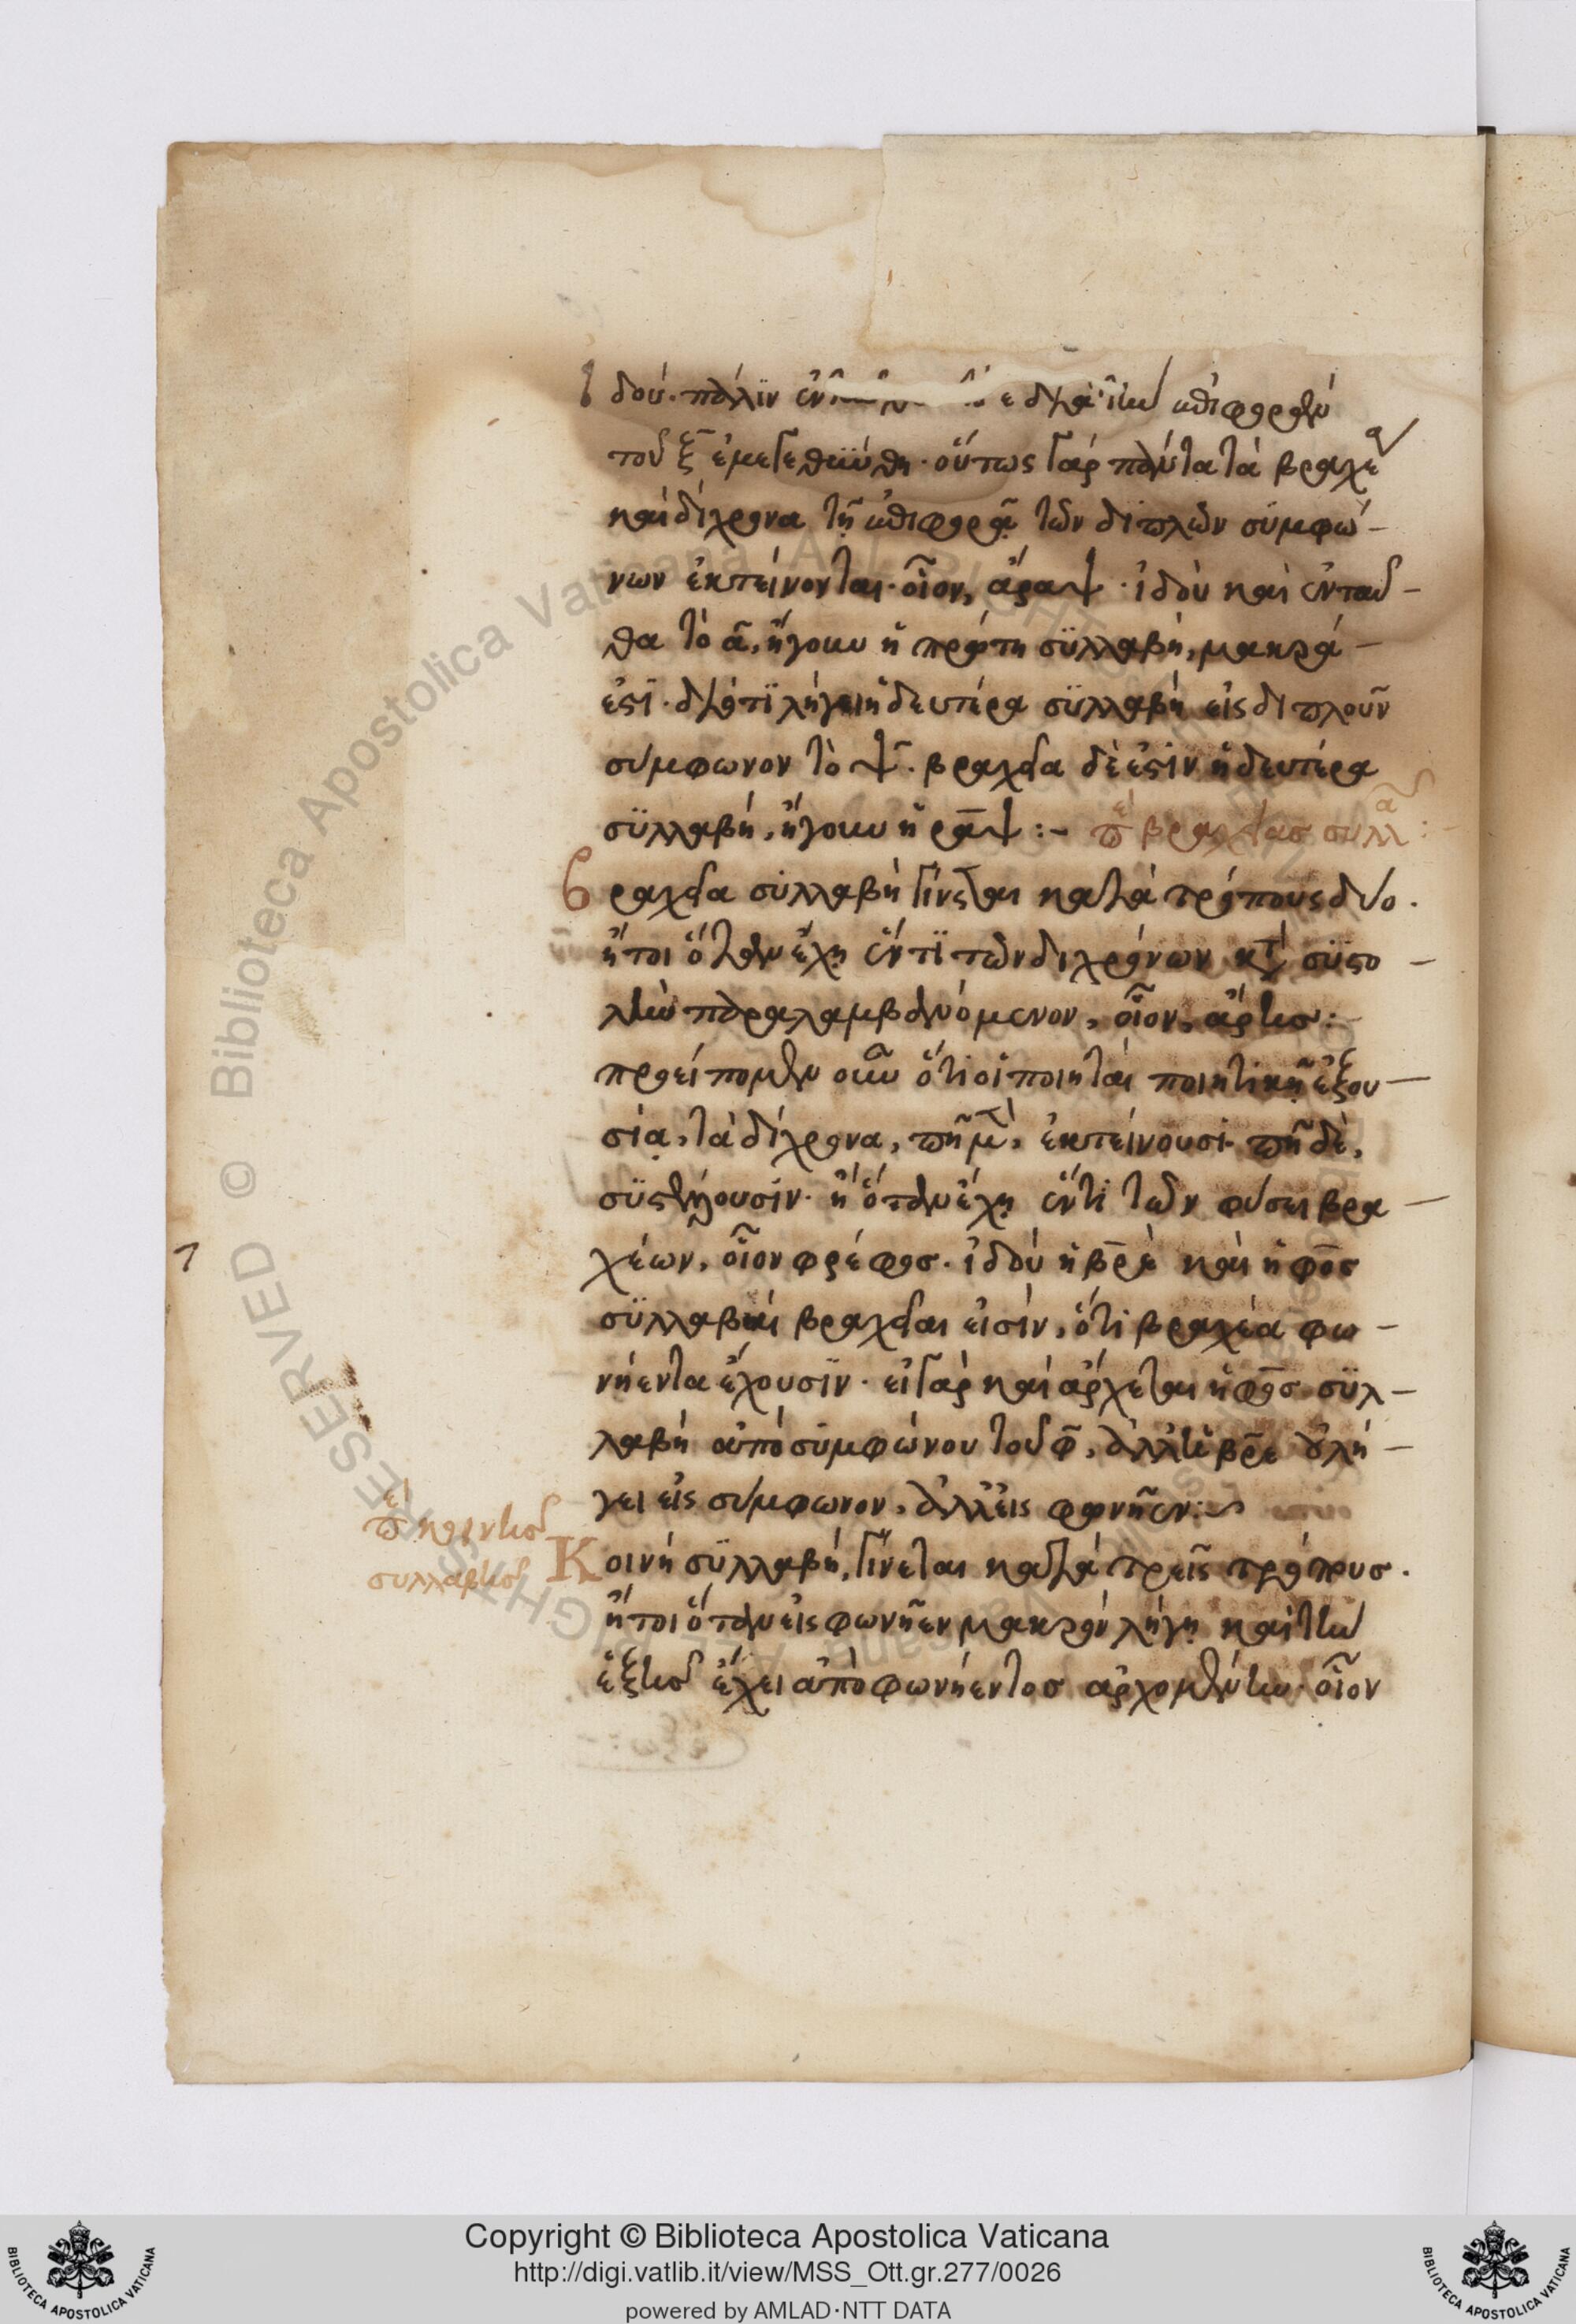 ἰδού· πάλιν διὰ τὴν ἐπιφορὰν
τοῦ ξ ἐμεγεθύνθη· οὕτως γὰρ πάντα τὰ βραχέα
καὶ δίχρονα τῇ ἐπιφορᾷ τῶν διπλῶν συμφώ-
νων ἐκτείνονται· οἷον, ἄραψ· ἰδοὺ καὶ ἐνταῦ-
θα τὸ α, ἤγουν ἡ πρώτη συλλαβή, μακρά
ἐστι· διότι λήγει ἡ δευτέρα συλλαβὴ εἰς διπλοῦν
σύμφωνον τὸ ψ. βραχεῖα δέ ἐστιν ἡ δευτέρα
συλλαβή, ἤγουν ἡ ραψ :- περὶ βραχείας συλλα :
βραχεῖα συλλαβὴ γίνεται κατὰ τρόπους δύο.
ἤτοι ὅταν ἔχῃ ἕν τι τῶν διχρόνων κατὰ συστο-
λὴν παραλαμβανόμενον, οἷον, ἄρης :
προείπομεν οὖν ὅτι οἱ ποιηταὶ ποιητικῇ ἐξου-
σίᾳ, τὰ δίχρονα, πῆ μὲν, ἐκτείνουσι· πῆ δὲ,
συστέλλουσιν· ἢ ὅταν ἔχῃ ἕν τι τῶν φύσει βρα-
χέων, οἷον βρέφος· ἰδοὺ ἡ βρε καὶ ἡ φος
συλλαβαὶ βραχεῖαι εἰσίν, ὅτι βραχέα φω-
νήεντα ἔχουσιν· εἰ γὰρ καὶ ἄρχεται ἡ φος συλ-
λαβὴ ἀπὸ συμφώνου τοῦ φ, ἀλλ' ἡ βρε οὐ λή-
γει εἰς σύμφωνον, ἀλλ' εἰς φωνῆεν :
περὶ κοινῆς
συλλαβῆς
Κοινὴ συλλαβή, γίνεται κατὰ τρεῖς τρόπους.
ἤτοι ὅταν εἰς φωνῆεν μακρὸν λήγῃ καὶ τὴν
ἑξῆς ἔχει ἀπὸ φωνήεντος ἀρχομένην· οἷον
Copyright © Biblioteca Apostolica Vaticana
http://digi.vatlib.it/view/MSS_Ott.gr.277/0026
powered by AMLAD·NTT DATA
BIBLIOTECA APOSTOLICA VATICANA
BIBLIOTECA APOSTOLICA VATICANA